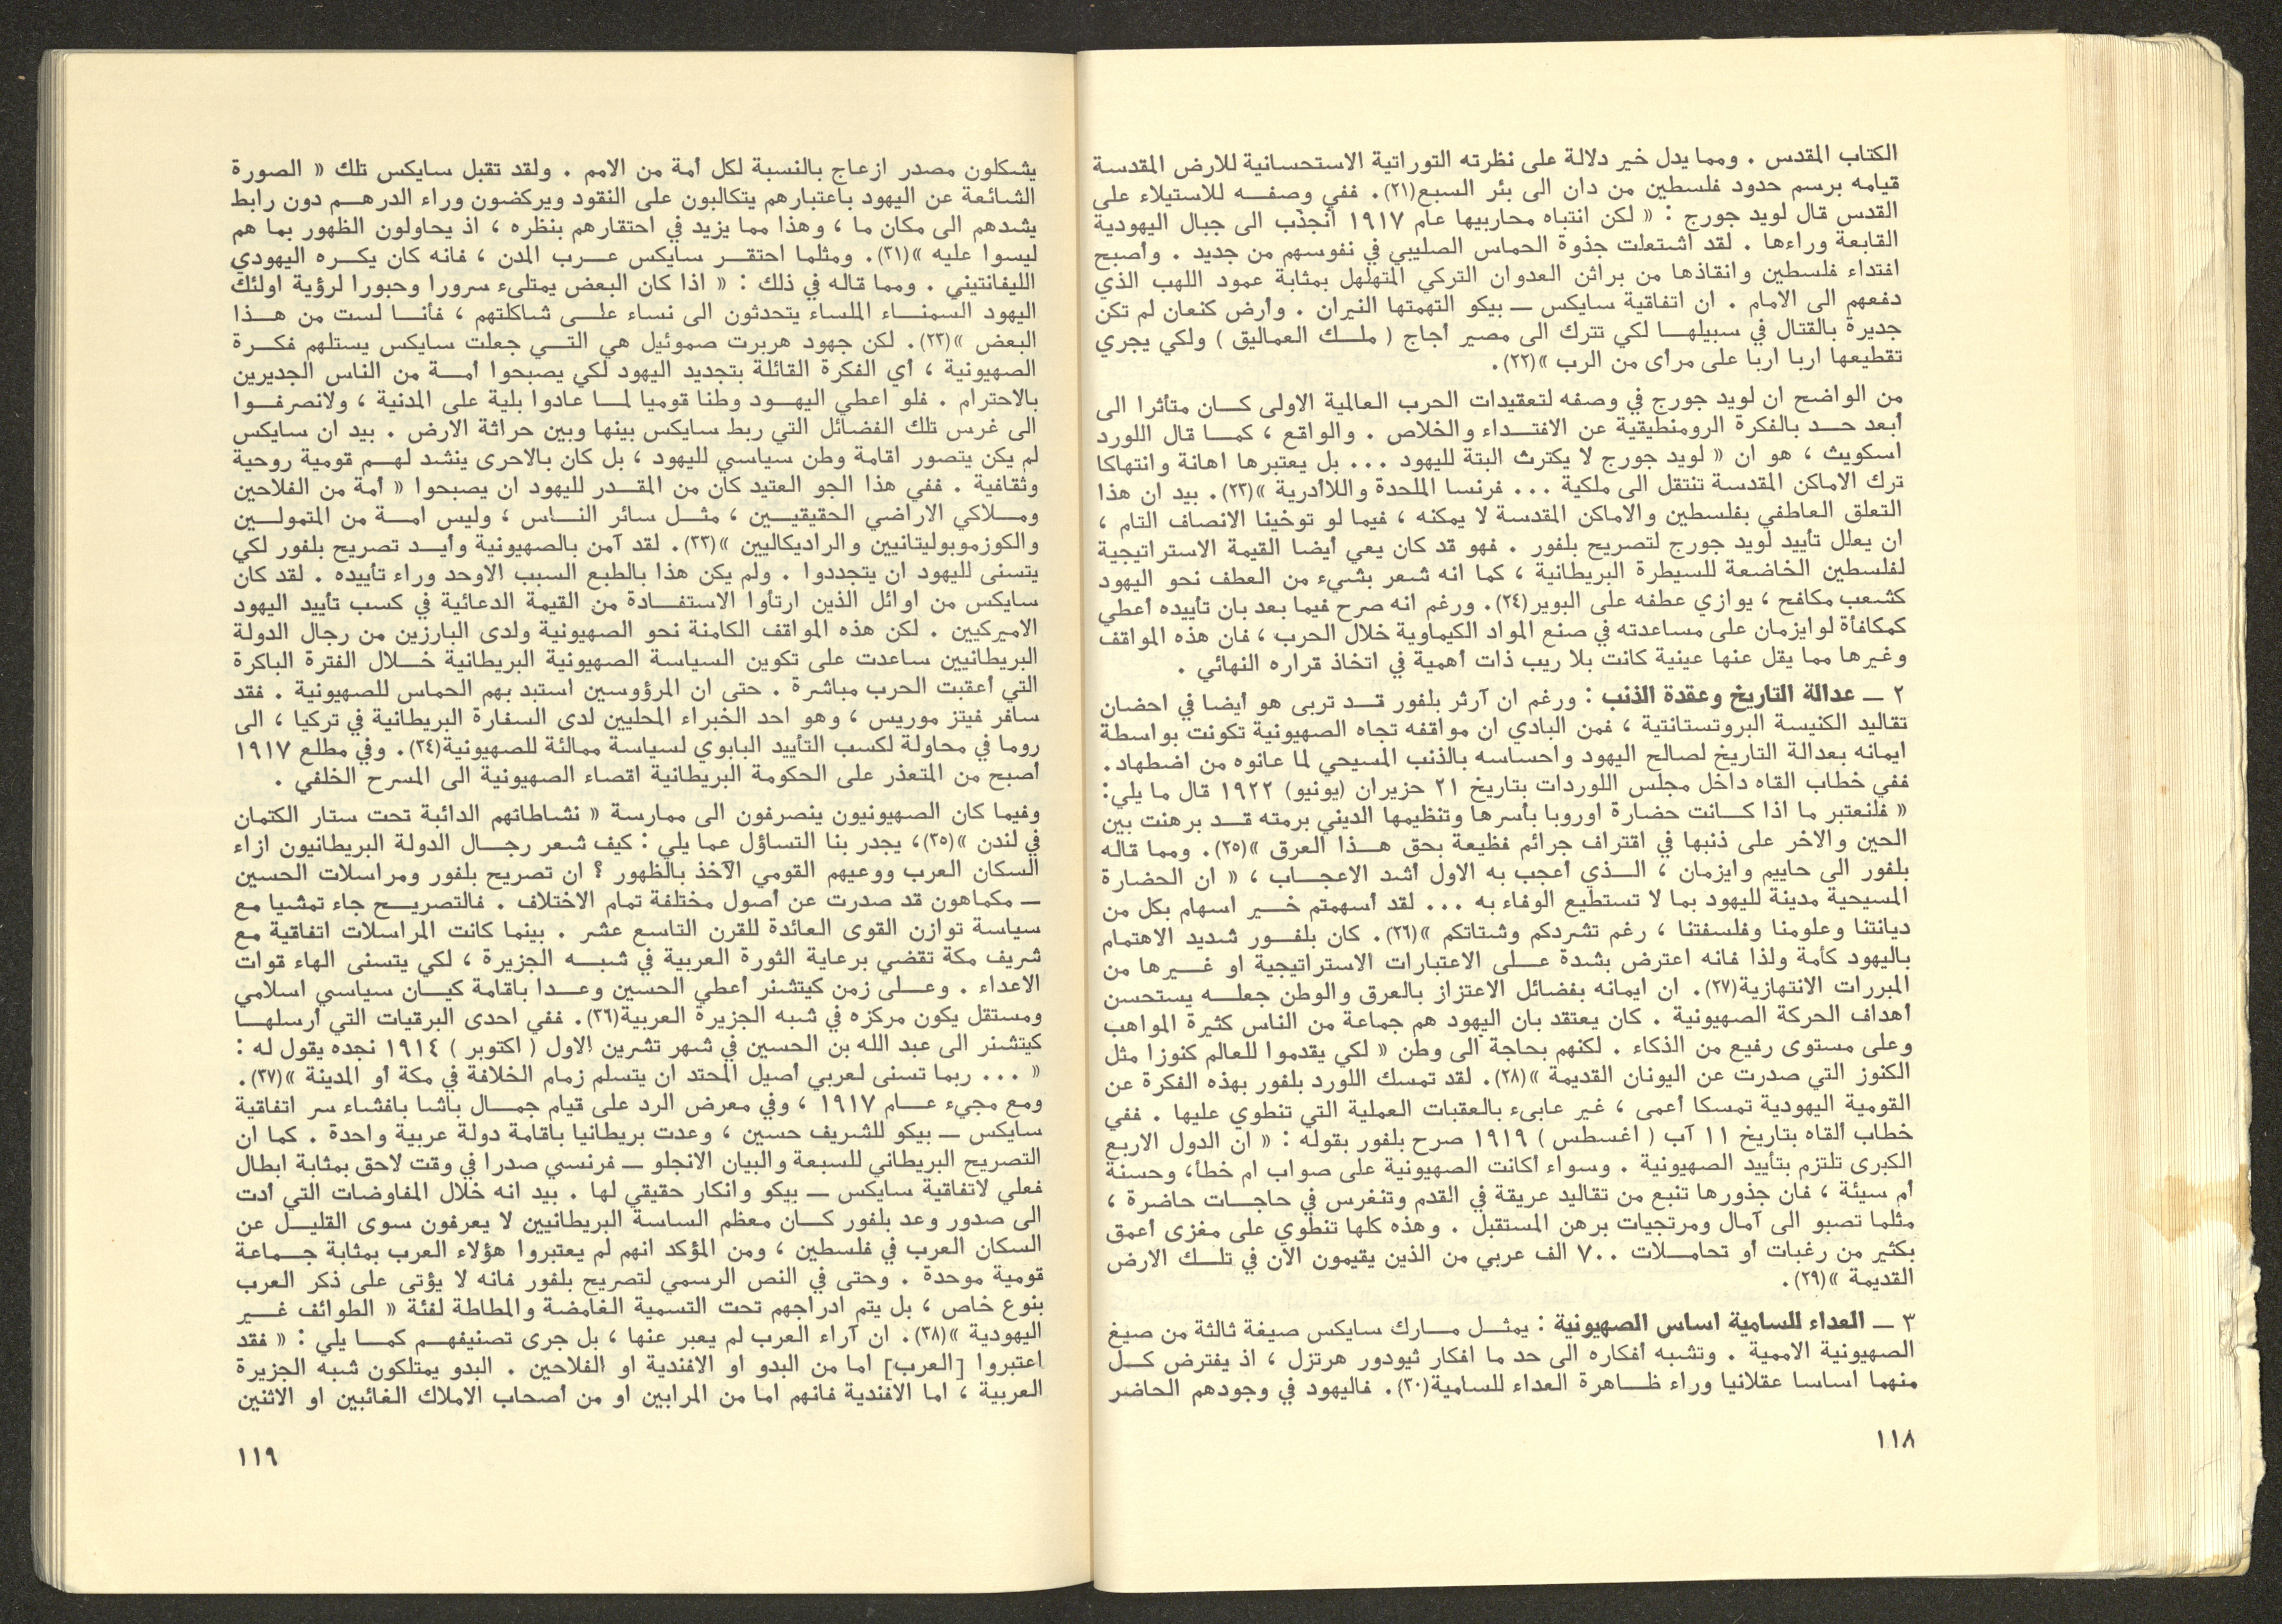 الكتاب المقدس . ومما يدل خير دلالة على نظرته التوراتية الاستحسانية للارض المقدسة
قيامه برسم حدود فلسطين من دان الى بئر السبع(٢١). ففي وصفـه للاستيلاء على
القدس قال لويد جورج : « لكن انتباه محاربيها عام ١٩١٧ انجذب الى جبال اليهودية
القابعة وراءها . لقد اشتعلت جذوة الحماس الصليبي في نفوسهم من جديد . وأصبح
افتداء فلسطين وانقاذها من براثن العدوان التركي المتهلهل بمثابة عمود اللهب الذي
دفعهم الى الامام . ان اتفاقية سايكس ــ بيكو التهمتها النيران . وأرض كنعان لم تكن
جديرة بالقتال في سبيلهـا لكي تترك الى مصير أجاج ( ملـك العماليق ) ولكي يجري
تقطيعها اربا اربا على مرأى من الرب »(٢٢).
من الواضح ان لويد جورج في وصفه لتعقيدات الحرب العالمية الاولى كـان متأثرا الى
أبعد حـد بالفكرة الرومنطيقية عن الافتـداء والخلاص . والواقع ، كمـا قال اللورد
اسكويث ، هو ان « لويد جورج لا يكترث البتة لليهود ... بل يعتبرها اهانة وانتهاكا
ترك الاماكن المقدسة تنتقل الى ملكية ... فرنسا الملحدة واللاأدرية »(٢٣). بيد ان هذا
التعلق العاطفي بفلسطين والاماكن المقدسة لا يمكنه ، فيما لو توخينا الانصاف التام ،
ان يعلل تأييد لويد جورج لتصريح بلفور . فهو قد كان يعي أيضا القيمة الاستراتيجية
لفلسطين الخاضعة للسيطرة البريطانية ، كما انه شعر بشيء من العطف نحو اليهود
كشعب مكافح ، يوازي عطفه على البوير(٢٤). ورغم انه صرح فيما بعد بان تأييده أعطي
كمكافأة لوايزمان على مساعدته في صنع المواد الكيماوية خلال الحرب ، فان هذه المواقف
وغيرها مما يقل عنها عينية كانت بلا ريب ذات أهمية في اتخاذ قراره النهائي .
٢ ــ عدالة التاريخ وعقدة الذنب : ورغم ان آرثر بلفور قـد تربى هو أيضا في احضان
تقاليد الكنيسة البروتستانتية ، فمن البادي ان مواقفه تجاه الصهيونية تكونت بواسطة
ايمانه بعدالة التاريخ لصالح اليهود واحساسه بالذنب المسيحي لما عانوه من اضطهاد.
ففي خطاب القاه داخل مجلس اللوردات بتاريخ ٢١ حزيران (يونيو) ١٩٢٢ قال ما يلي:
« فلنعتبر ما اذا كـانت حضارة اوروبا بأسرها وتنظيمها الديني برمته قـد برهنت بين
الحين والاخر على ذنبها في اقتراف جرائم فظيعة بحق هـذا العرق »(٢٥). ومما قاله
بلفور الى حاييم وايزمان ، الـذي أعجب به الاول أشد الاعجـاب ، « ان الحضارة
المسيحية مدينة لليهود بما لا تستطيع الوفاء به ... لقد أسهمتم خـير اسهام بكل من
ديانتنا وعلومنا وفلسفتنا ، رغم تشردكم وشتاتكم »(٢٦). كان بلفـور شديد الاهتمام
باليهود كأمة ولذا فانه اعترض بشدة عـلى الاعتبارات الاستراتيجية او غـيرها من
المبررات الانتهازية(٢٧). ان ايمانه بفضائل الاعتزاز بالعرق والوطن جعلـه يستحسن
أهداف الحركة الصهيونية . كان يعتقد بان اليهود هم جماعة من الناس كثيرة المواهب
وعلى مستوى رفيع من الذكاء . لكنهم بحاجة الى وطن « لكي يقدموا للعالم كنوزا مثل
الكنوز التي صدرت عن اليونان القديمة »(٢٨). لقد تمسك اللورد بلفور بهذه الفكرة عن
القومية اليهودية تمسكا أعمى ، غير عابىء بالعقبات العملية التي تنطوي عليها . ففي
خطاب ألقاه بتاريخ ١١ آب ( اغسطس ) ١٩١٩ صرح بلفور بقوله : « ان الدول الاربع
الكبرى تلتزم بتأييد الصهيونية . وسواء أكانت الصهيونية على صواب ام خطأ، وحسنة
أم سيئة ، فان جذورها تنبع من تقاليد عريقة في القدم وتنغرس في حاجـات حاضرة ،
مثلما تصبو الى آمال ومرتجيات برهن المستقبل . وهذه كلها تنطوي على مغزى أعمق
بكثير من رغبات أو تحامـلات ٧٠٠ الف عربي من الذين يقيمون الآن في تلـك الارض
القديمة »(٢٩).
٣ ــ العداء للسامية اساس الصهيونية : يمثـل مـارك سايكس صيغة ثالثة من صيغ
الصهيونية الاممية . وتشبه أفكاره الى حد ما افكار ثيودور هرتزل ، اذ يفترض كـل
منهما اساسا عقلانيا وراء ظـاهرة العداء للسامية(٣٠). فاليهود في وجودهم الحاضر
١١٨
يشكلون مصدر ازعاج بالنسبة لكل أمة من الامم . ولقد تقبل سايكس تلك « الصورة
الشائعة عن اليهود باعتبارهم يتكالبون على النقود ويركضون وراء الدرهـم دون رابط
يشدهم الى مكان ما ، وهذا مما يزيد في احتقارهم بنظره ، اذ يحاولون الظهور بما هم
ليسوا عليه »(٣١). ومثلما احتقـر سايكس عـرب المدن ، فانه كان يكـره اليهودي
الليفانتيني . ومما قاله في ذلك : « اذا كان البعض يمتلىء سرورا وحبورا لرؤية اولئك
اليهود السمنـاء الملساء يتحدثون الى نساء علـى شاكلتهم ، فأنـا لست من هـذا
البعض »(٢٢). لكن جهود هربرت صموئيل هي التـي جعلت سايكس يستلهم فكـرة
الصهيونية ، أي الفكرة القائلة بتجديد اليهود لكي يصبحوا أمـة من الناس الجديرين
بالاحترام . فلو اعطي اليهـود وطنا قوميا لمـا عادوا بلية على المدنية ، ولانصرفـوا
الى غرس تلك الفضائل التي ربط سايكس بينها وبين حراثة الارض . بيد ان سايكس
لم يكن يتصور اقامة وطن سياسي لليهود ، بل كان بالاحرى ينشد لهـم قومية روحية
وثقافية . ففي هذا الجو العتيد كان من المقـدر لليهود ان يصبحوا « أمة من الفلاحين
ومـلاكي الاراضي الحقيقيـين ، مثـل سائر النـاس ، وليس امـة من المتمولـين
والكوزموبوليتانيين والراديكاليين »(٣٣). لقد آمن بالصهيونية وأيـد تصريح بلفور لكي
يتسنى لليهود ان يتجددوا . ولم يكن هذا بالطبع السبب الاوحد وراء تأييده . لقد كان
سايكس من اوائل الذين ارتأوا الاستفـادة من القيمة الدعائية في كسب تأييد اليهود
الاميركيين . لكن هذه المواقف الكامنة نحو الصهيونية ولدى البارزين من رجال الدولة
البريطانيين ساعدت على تكوين السياسة الصهيونية البريطانية خـلال الفترة الباكرة
التي أعقبت الحرب مباشرة . حتى ان المرؤوسين استبد بهم الحماس للصهيونية . فقد
سافر فيتز موريس ، وهو احد الخبراء المحليين لدى السفارة البريطانية في تركيا ، الى
روما في محاولة لكسب التأييد البابوي لسياسة ممالئة للصهيونية(٣٤). وفي مطلع ١٩١٧
أصبح من المتعذر على الحكومة البريطانية اقصاء الصهيونية الى المسرح الخلفي .
وفيما كان الصهيونيون ينصرفون الى ممارسة « نشاطاتهم الدائبة تحت ستار الكتمان
في لندن »(٣٥)، يجدر بنا التساؤل عما يلي : كيف شعر رجـال الدولة البريطانيون ازاء
السكان العرب ووعيهم القومي الآخذ بالظهور ؟ ان تصريح بلفور ومراسلات الحسين
ــ مكماهون قد صدرت عن أصول مختلفة تمام الاختلاف . فالتصريـح جاء تمشيا مع
سياسة توازن القوى العائدة للقرن التاسع عشر . بينما كانت المراسلات اتفاقية مع
شريف مكة تقضي برعاية الثورة العربية في شبـه الجزيرة ، لكي يتسنى الهاء قوات
الاعداء . وعـلى زمن كيتشنر أعطي الحسين وعـدا باقامة كيـان سياسي اسلامي
ومستقل يكون مركزه في شبه الجزيرة العربية(٣٦). ففي احدى البرقيات التي أرسلهـا
كيتشنر الى عبد الله بن الحسين في شهر تشرين الاول ( اكتوبر ) ١٩١٤ نجده يقول له :
« ... ربما تسنى لعربي أصيل المحتد ان يتسلم زمام الخلافة في مكة أو المدينة »(٣٧).
ومع مجيء عـام ١٩١٧ ، وفي معرض الرد على قيام جمـال باشا بافشاء سر اتفاقية
سايكس ــ بيكو للشريف حسين ، وعدت بريطانيا باقامة دولة عربية واحدة . كما ان
التصريح البريطاني للسبعة والبيان الانجلو ــ فرنسي صدرا في وقت لاحق بمثابة ابطال
فعلي لاتفاقية سايكس ــ بيكو وانكار حقيقي لها . بيد انه خلال المفاوضات التي أدت
الى صدور وعد بلفور كـان معظم الساسة البريطانيين لا يعرفون سوى القليـل عن
السكان العرب في فلسطين ، ومن المؤكد انهم لم يعتبروا هؤلاء العرب بمثابة جـماعة
قومية موحدة . وحتى في النص الرسمي لتصريح بلفور فانه لا يؤتى على ذكر العرب
بنوع خاص ، بل يتم ادراجهم تحت التسمية الغامضة والمطاطة لفئة « الطوائف غـير
اليهودية »(٣٨). ان آراء العرب لم يعبر عنها ، بل جرى تصنيفهـم كمـا يلي : « فقد
اعتبروا [العرب] اما من البدو او الافندية او الفلاحين . البدو يمتلكون شبه الجزيرة
العربية ، اما الافندية فانهم اما من المرابين او من أصحاب الاملاك الغائبين او الاثنين
١١٩